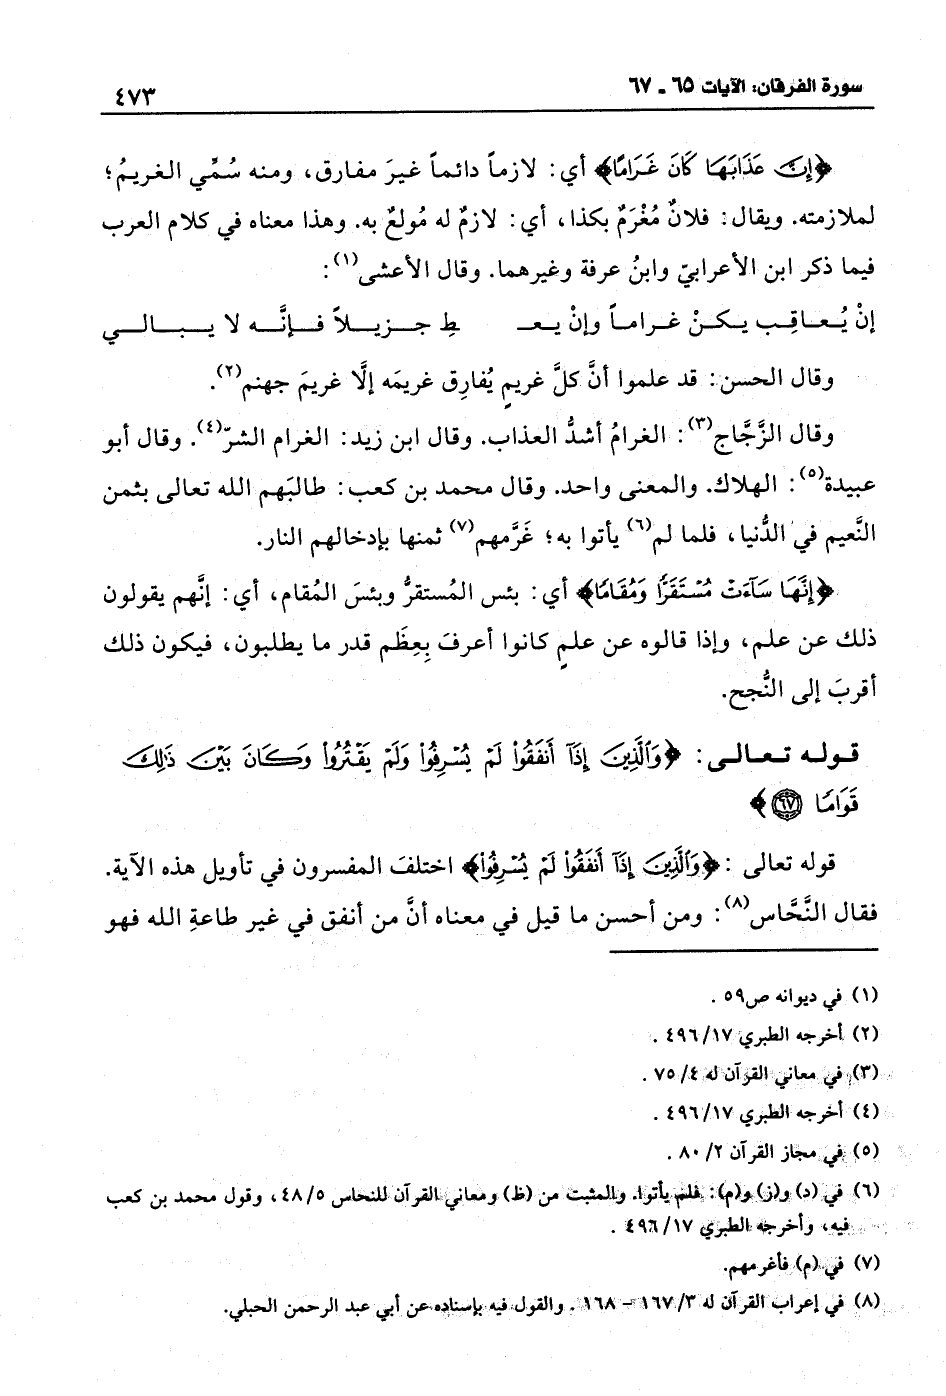 سورة الفرقان: الآيات ٦٥ ـ ٦٧
٤٧٣
﴿إِنَّ عَذَابَهَا كَانَ غَرَامًا﴾ أي: لازماً دائماً غيرَ مفارق، ومنه سُمِّي الغريمُ؛
لملازمته. ويقال: فلانٌ مُغْرَمٌ بكذا، أي: لازمٌ له مُولعٌ به. وهذا معناه في كلام العرب
فيما ذكر ابن الأعرابيّ وابنُ عرفة وغيرهما. وقال الأعشى(١):
إنْ يُعـاقِـب يكـنْ غـرامـاً وإنْ يعـ ـطِ جـزيـلاً فـإنَّـه لا يـبـالـي
وقال الحسن: قد علموا أنَّ كلَّ غريمٍ يُفارِق غريمَه إلَّا غريمَ جهنم(٢).
وقال الزَّجَّاج(٣): الغرامُ أشدُّ العذاب. وقال ابن زيد: الغرام الشرّ(٤). وقال أبو
عبيدة(٥): الهلاك. والمعنى واحد. وقال محمد بن كعب: طالبَهم الله تعالى بثمن
النَّعيم في الدُّنيا، فلما لم(٦) يأتوا به؛ غَرَّمهم(٧) ثمنها بإدخالهم النار.
﴿إِنَّهَا سَآءَتْ مُسْتَقَرًّا وَمُقَامًا﴾ أي: بئس المُستقرُّ وبئسَ المُقام، أي: إنَّهم يقولون
ذلك عن علم، وإذا قالوه عن علمٍ كانوا أعرفَ بِعِظَم قدر ما يطلبون، فيكون ذلك
أقربَ إلى النُّجح.
قولـه تعـالـى: ﴿وَالَّذِينَ إِذَآ أَنفَقُوا۟ لَمْ يُسْرِفُوا۟ وَلَمْ يَقْتُرُوا۟ وَكَانَ بَيْنَ ذَٰلِكَ
قَوَامًا ٦٧﴾
قوله تعالى :﴿وَالَّذِينَ إِذَآ أَنفَقُوا۟ لَمْ يُسْرِفُوا۟﴾ اختلفَ المفسرون في تأويل هذه الآية.
فقال النَّحَّاس(٨): ومن أحسن ما قيل في معناه أنَّ من أنفق في غير طاعةِ الله فهو
(١) في ديوانه ص٥٩ .
(٢) أخرجه الطبري ١٧/ ٤٩٦ .
(٣) في معاني القرآن له ٤/ ٧٥ .
(٤) أخرجه الطبري ١٧/ ٤٩٦ .
(٥) في مجاز القرآن ٢/ ٨٠ .
(٦) في (د) و(ز) و(م): فلم يأتوا. والمثبت من (ظ) ومعاني القرآن للنحاس ٥/ ٤٨، وقول محمد بن كعب
فيه، وأخرجه الطبري ١٧/ ٤٩٦ .
(٧) في (م) فأغرمهم.
(٨) في إعراب القرآن له ٣/ ١٦٧ – ١٦٨ . والقول فيه بإسناده عن أبي عبد الرحمن الحبلي.